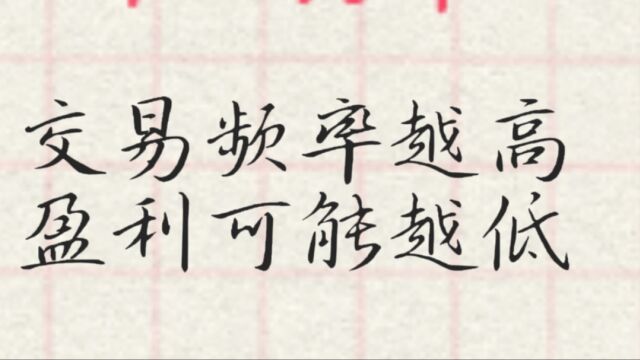 交易频率越高
盈利可能越低